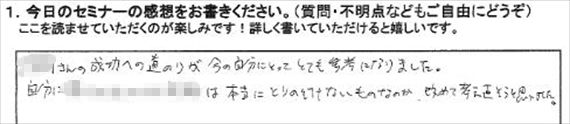 1. 今日のセミナーの感想をお書きください。(質問・不明点などもご自由にどうぞ)
ここを読ませていただくのが楽しみです!詳しく書いていただけると嬉しいです。
さんの成功への道のりが今の自分にとってとても参考になりました。
自分に は本当にとりのぞけないものなのか、改めて考え直そうと思いました。